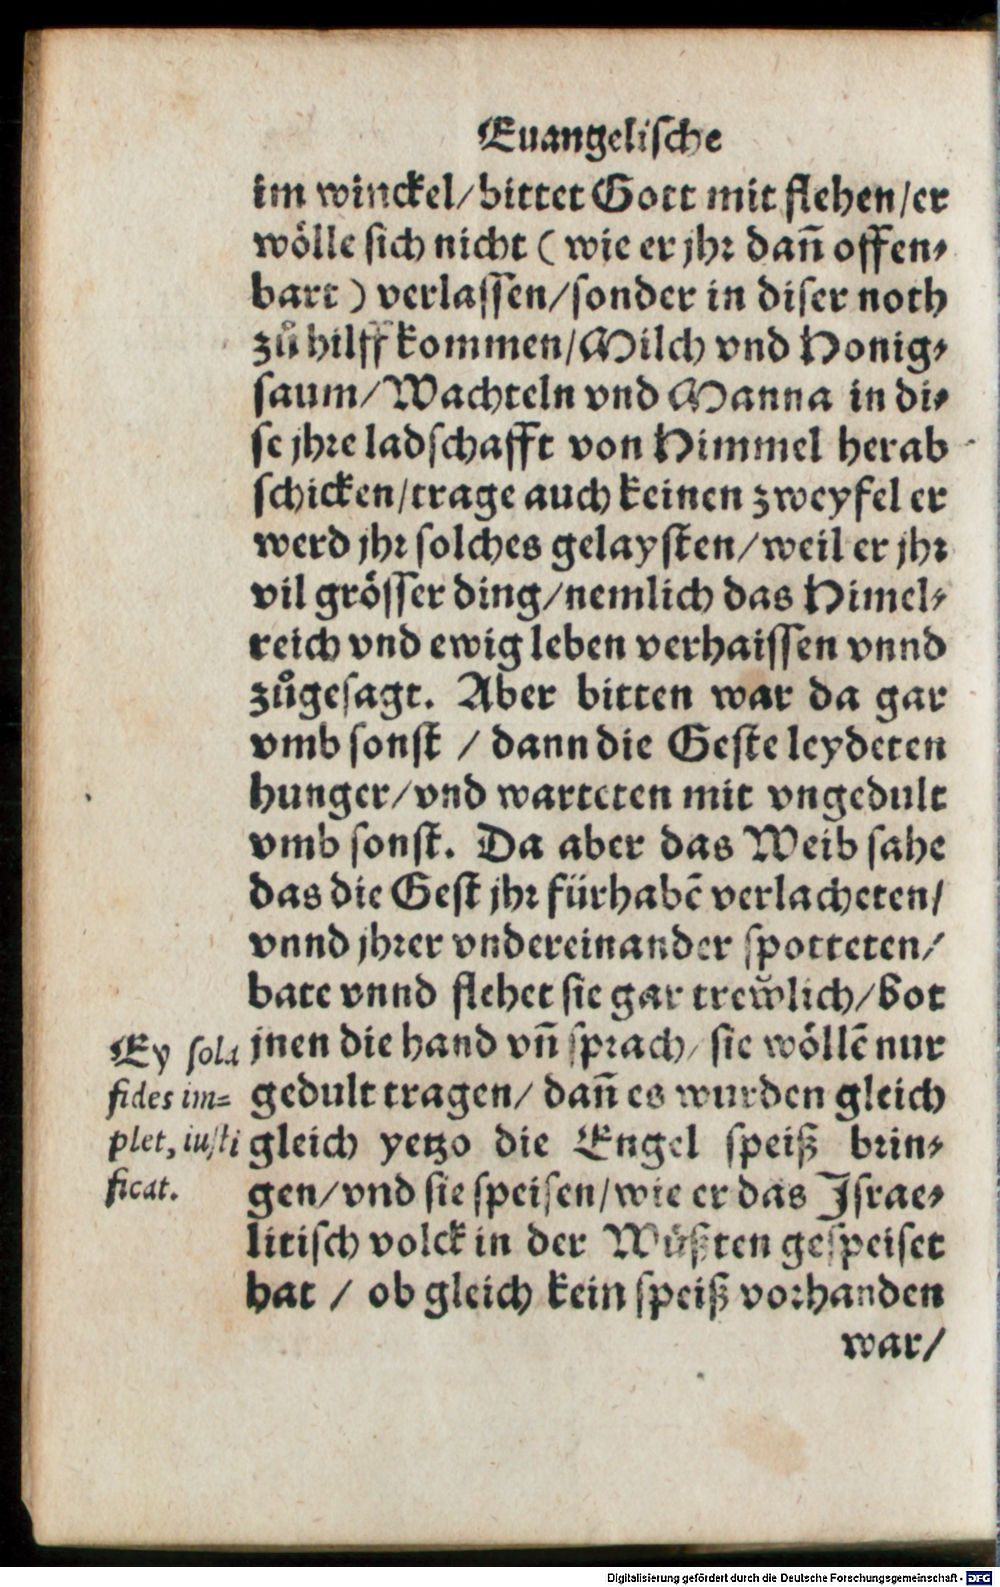 Euangelische
im winckel/bittet Gott mit flehen/er
wölle sich nicht (wie er jhr dañ offen-
bart) verlassen/sonder in diser noth
zů hilff kommen/Milch vnd Honig-
saum/Wachteln vnd Manna in di-
se jhre ladschafft von Himmel herab
schicken/trage auch keinen zweyfel er
werd jhr solches gelaysten/weil er jhr
vil grösser ding/nemlich das Himel-
reich vnd ewig leben verhaissen vnnd
zůgesagt. Aber bitten war da gar
vmb sonst / dann die Geste leydeten
hunger/vnd warteten mit vngedult
vmb sonst. Da aber das Weib sahe
das die Gest jhr fürhabē verlacheten/
vnnd jhrer vndereinander spotteten/
bate vnnd flehet sie gar trewlich/bot
jnen die hand vñ sprach/ sie wöllē nur
gedult tragen/ dañ es wurden gleich
gleich yetzo die Engel speiß brin-
gen/vnd sie speisen/wie er das Israe-
litisch volck in der Wüßten gespeiset
hat / ob gleich kein speiß vorhanden
war/
Ey sola
fides im=
plet, iusti
ficat.
Digitalisierung gefördert durch die Deutsche Forschungsgemeinschaft - DFG